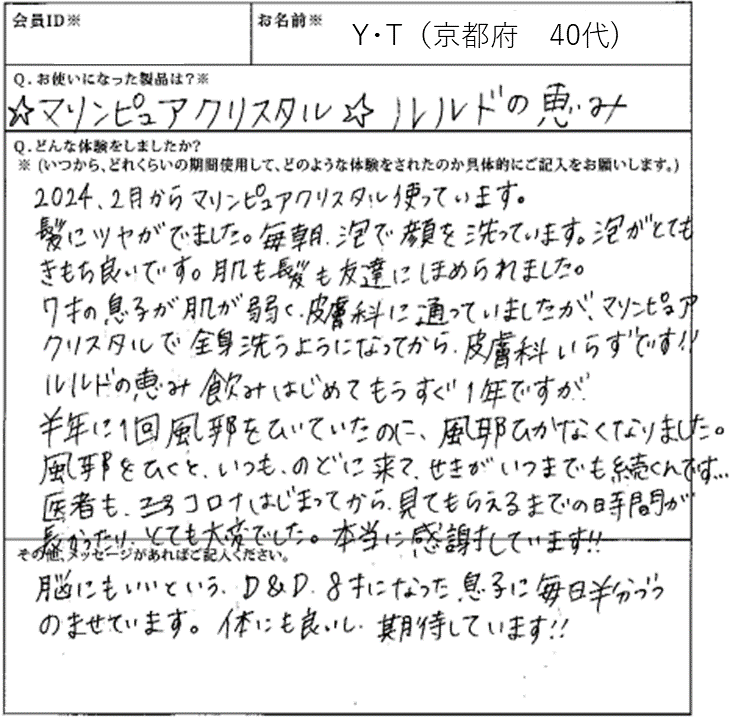 会員ID※
お名前※
Y・T（京都府　40代）
Q. お使いになった製品は？※
☆マリンピュアクリスタル ☆ ルルドの恵み
Q. どんな体験をしましたか？
※（いつから、どれくらいの期間使用して、どのような体験をされたのか具体的にご記入をお願いします。）
2024、2月からマリンピュアクリスタル使っています。
髪にツヤがでました。毎朝、泡で顔を洗っています。泡がとても
きもち良いです。肌も髪も友達にほめられました。
7才の息子が肌が弱く、皮膚科に通っていましたが、マリンピュア
クリスタルで全身洗うようになってから、皮膚科いらずです!!
ルルドの恵み 飲みはじめてもうすぐ1年ですが
半年に1回風邪をひいていたのに、風邪ひかなくなりました。
風邪をひくと、いつも、のどに来て、せきがいつまでも続くんです…
医者も、コロナはじまってから、見てもらえるまでの時間が
長かったり、とても大変でした。本当に感謝しています!!
その他、メッセージがあればご記入ください。
脳にもいいという、D&D、8才になった息子に毎日半分づつ
のませています。体にも良いし、期待しています!!